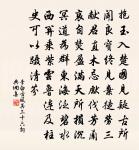 抱玉入楚國見疑古所
聞良寶終見棄徒勞三
獻君直木忌先伐芳蘭
哀自焚盈滿天所損沉
冥道為群東海沉碧水
西關乘紫雲魯連及柱
史可以躡清芬
李白古風其三十六